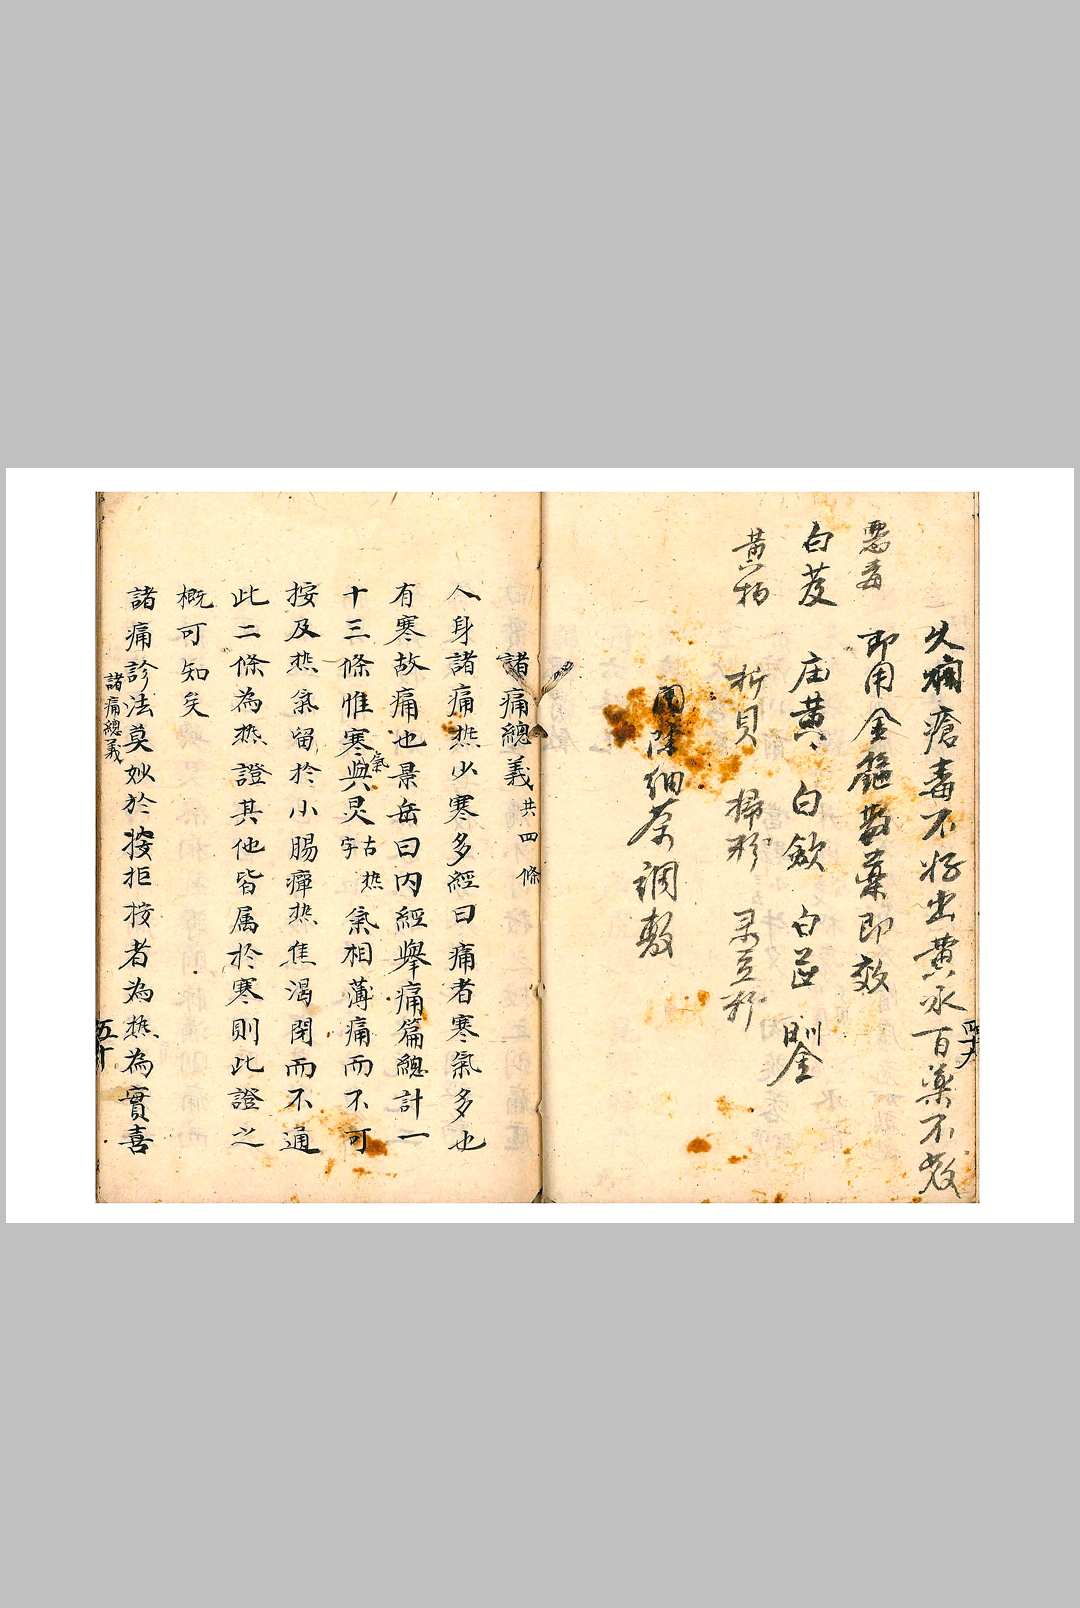 久爛瘡毒不好出黄水百藥不效
即用金箍散藥即效
惡毒
白芨 白蘞 白芷
黄柏 浙貝
用陳細茶調敷
諸痛總義共四條
人身諸痛热少寒多經曰痛者寒氣多也
有寒故痛也景岳曰内經舉痛篇總計一
十三條惟寒氣與炅古热字氣相薄痛而不可
按及热氣留於小腸癉热焦渴閉而不通
此二條為热證其他皆属於寒則此證之
概可知矣
諸痛診法莫妙於按拒按者為热為實喜
諸痛總義
五十